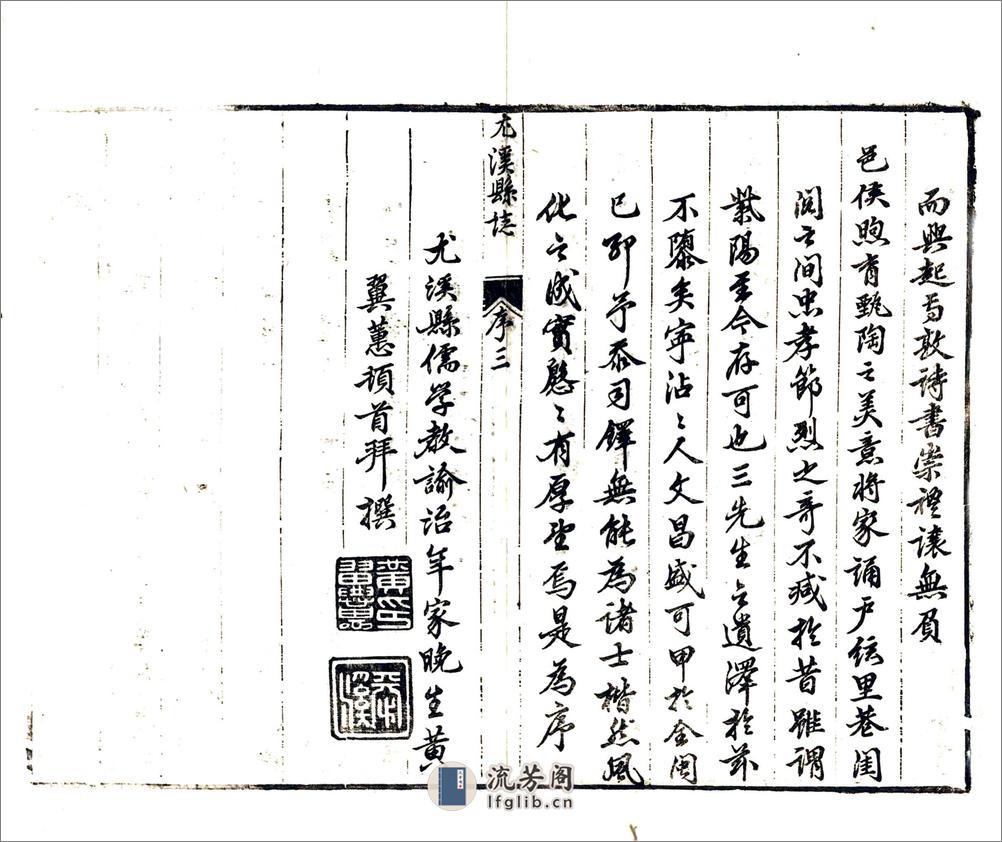 而興起焉敦詩書崇禮讓無負
邑侯煦育甄陶之美意將家誦戶絃里巷閨
閣之間忠孝節烈之奇不減於昔雖謂
紫陽至今存可也三先生之遺澤於茲
不隳矣寧沾〻人文昌盛可甲於全閩
已耶予忝司鐸無能為諸士楷然風
化之成實慇〻有厚望焉是為序
尤溪縣誌
序三
尤溪縣儒学教諭治年家晚生黃
翼蕙頓首拜撰
流芳阁
lfglib.cn